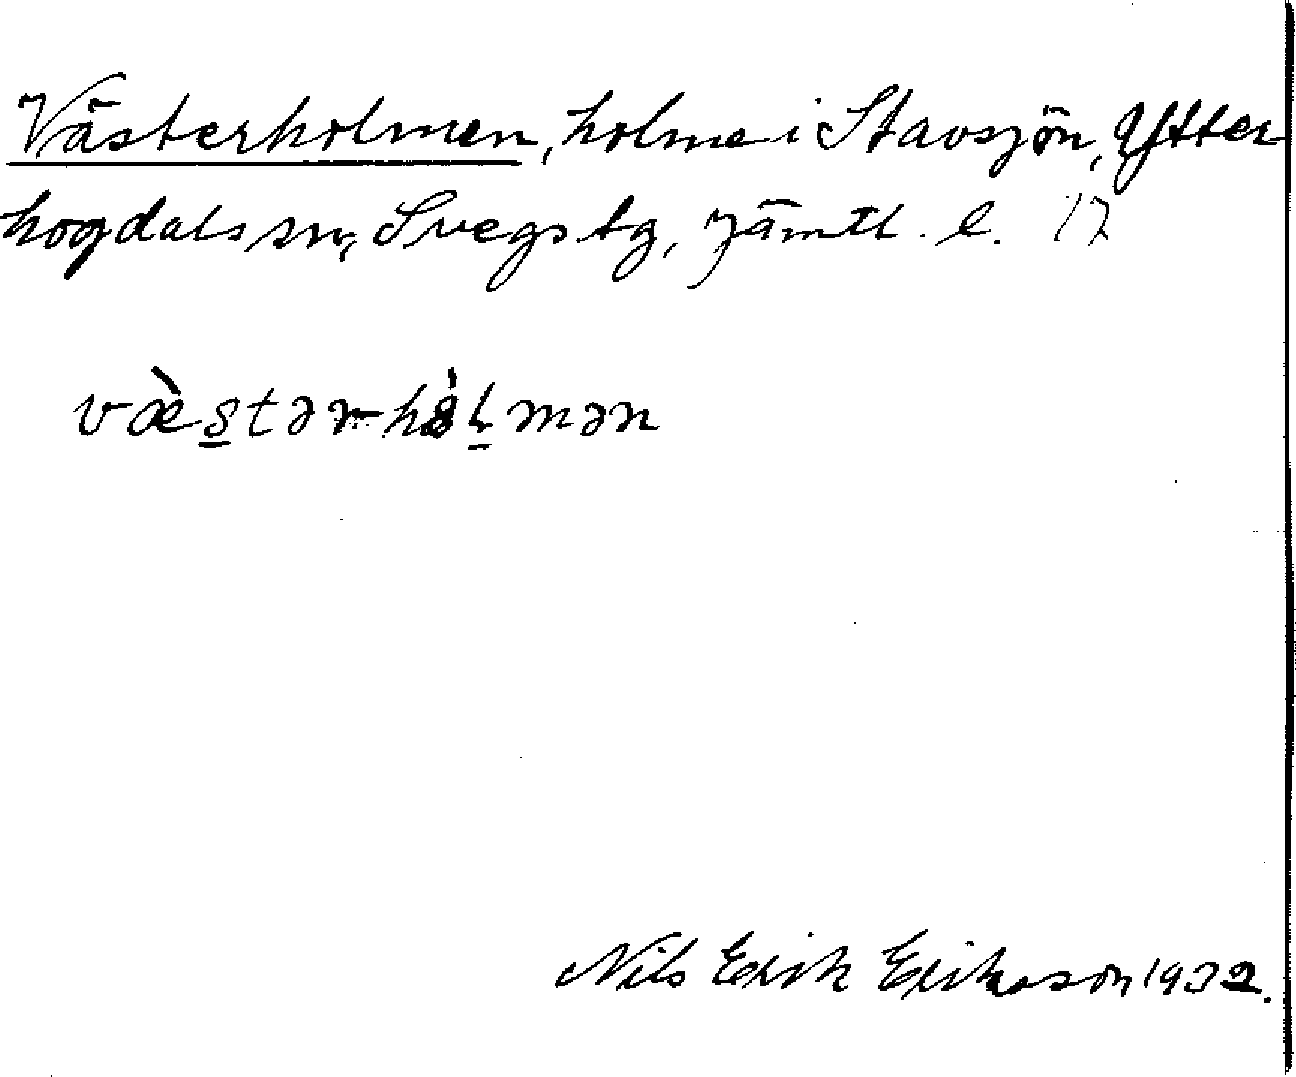 Västerholmen, holme i Stavsjön, Ytter
hogdals sn, Svegs tg, Jämtl. l. 17
væ̀s̲tər-hòl̲mən
Nils Erik Eriksson 1932.